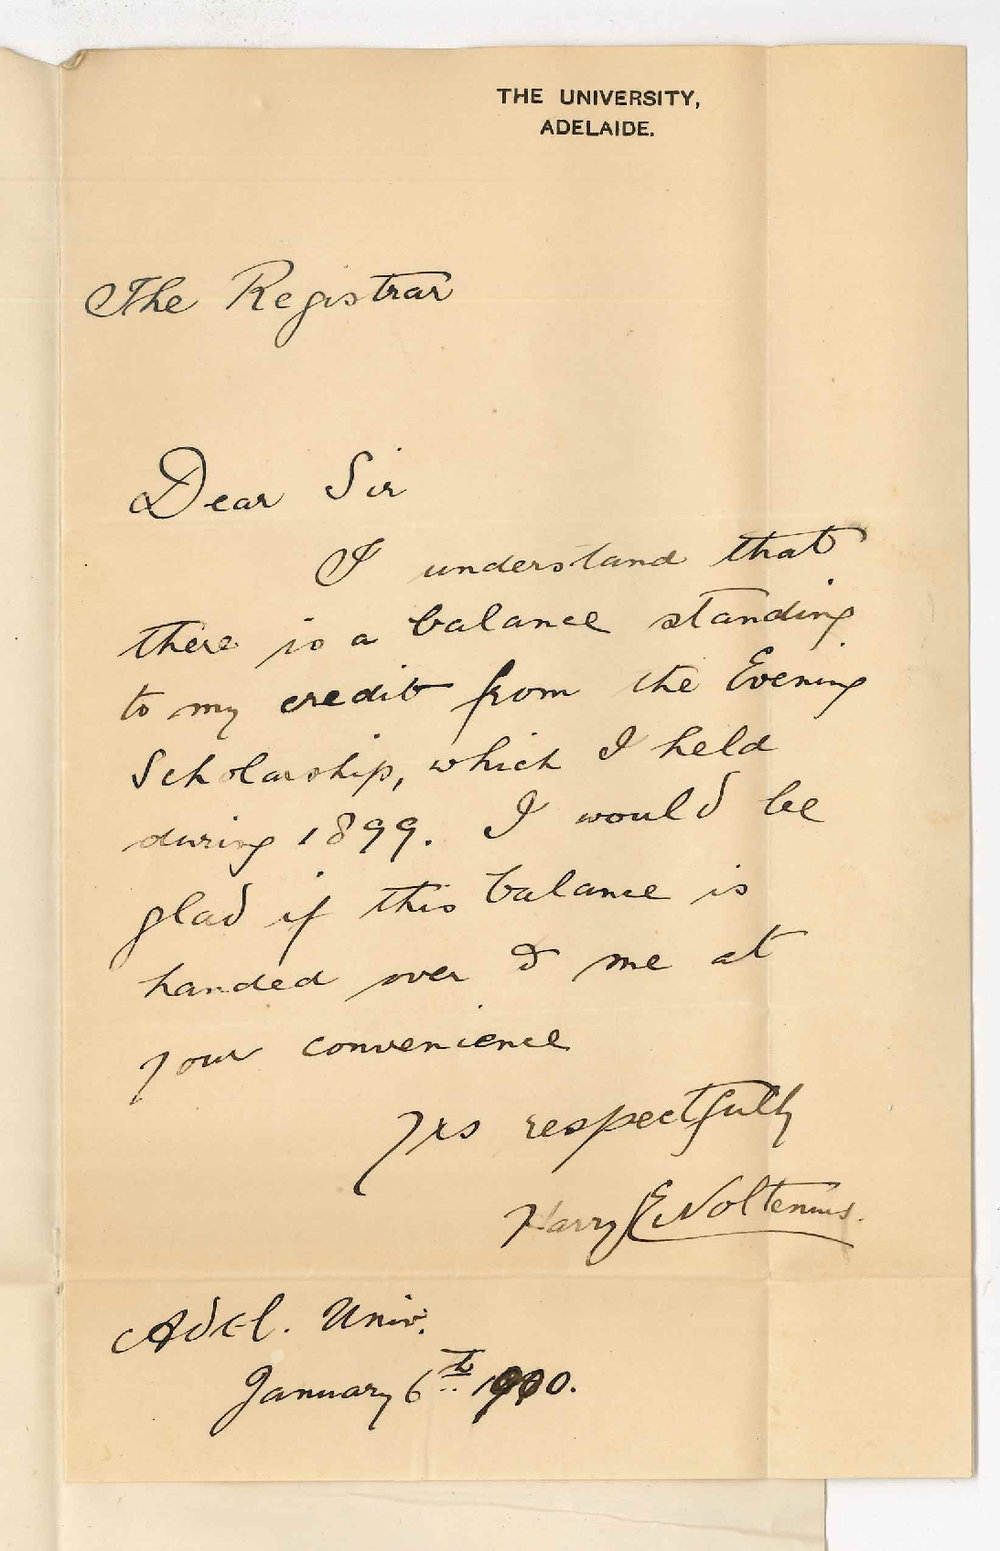 THE UNIVERSITY,
ADELAIDE.
The Registrar
Dear Sir
I understand that
there is a balance standing
to my credit from the Evening
Scholarship, which I held
during 1899. I would be
glad if this balance is
handed over to me at
your convenience
Yrs respectfully
Harry E Noltenius.
Adel. Univ.
January 6th 1900.